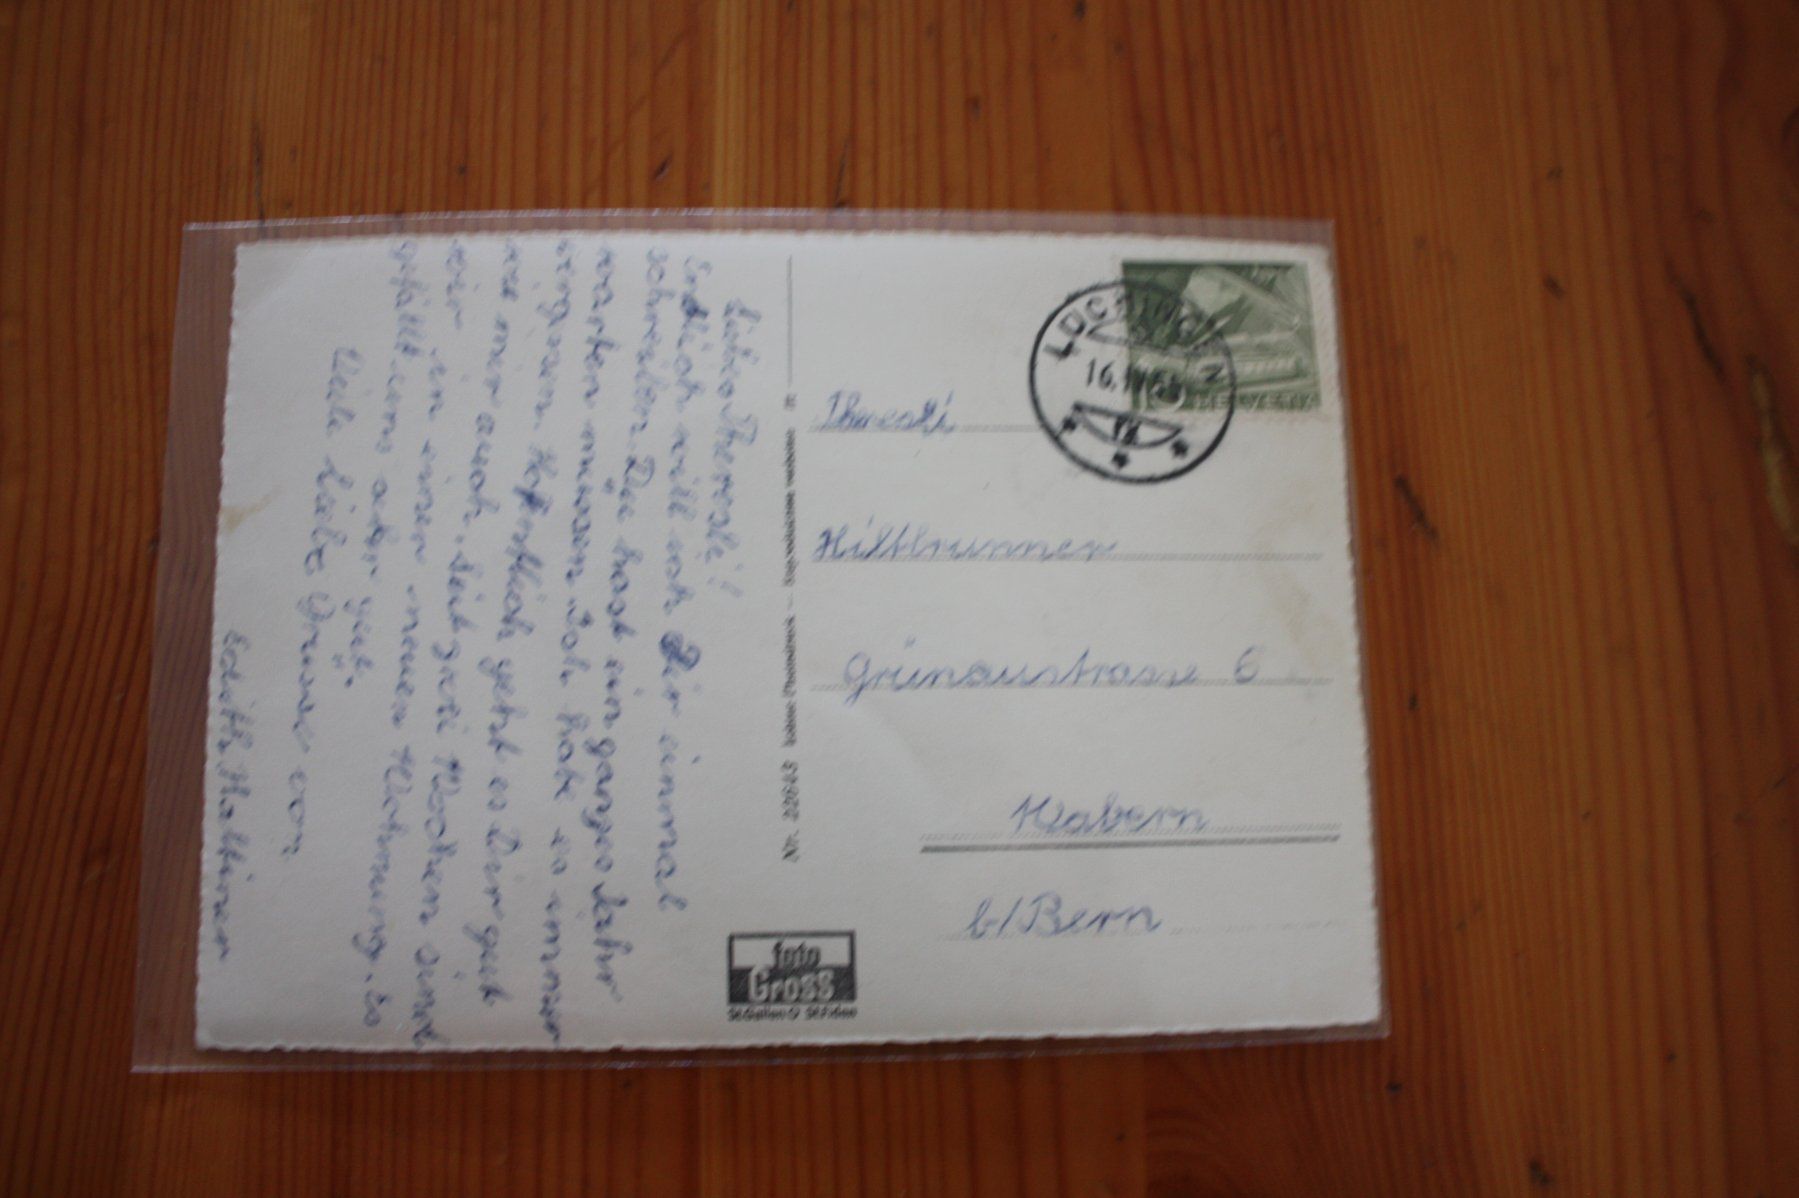 Liebes Theresli!
Endlich will ich Dir einmal
schreiben. Du hast ein ganzes Jahr
warten müssen. Ich habe es immer
vergessen. Hoffentlich geht es Dir gut
wie mir auch. Seit zwei Wochen sind
wir in einer neuen Wohnung. Es
gefällt uns sehr gut.
Viele liebe Grüsse von
Edith Mattner
Nr. 22643
foto
Gross
St.Gallen O St.Fiden
16.IV.
10 HELVETIA
Theresli
Hiltbrunner
Grünaustrasse 6
Wabern
b/Bern